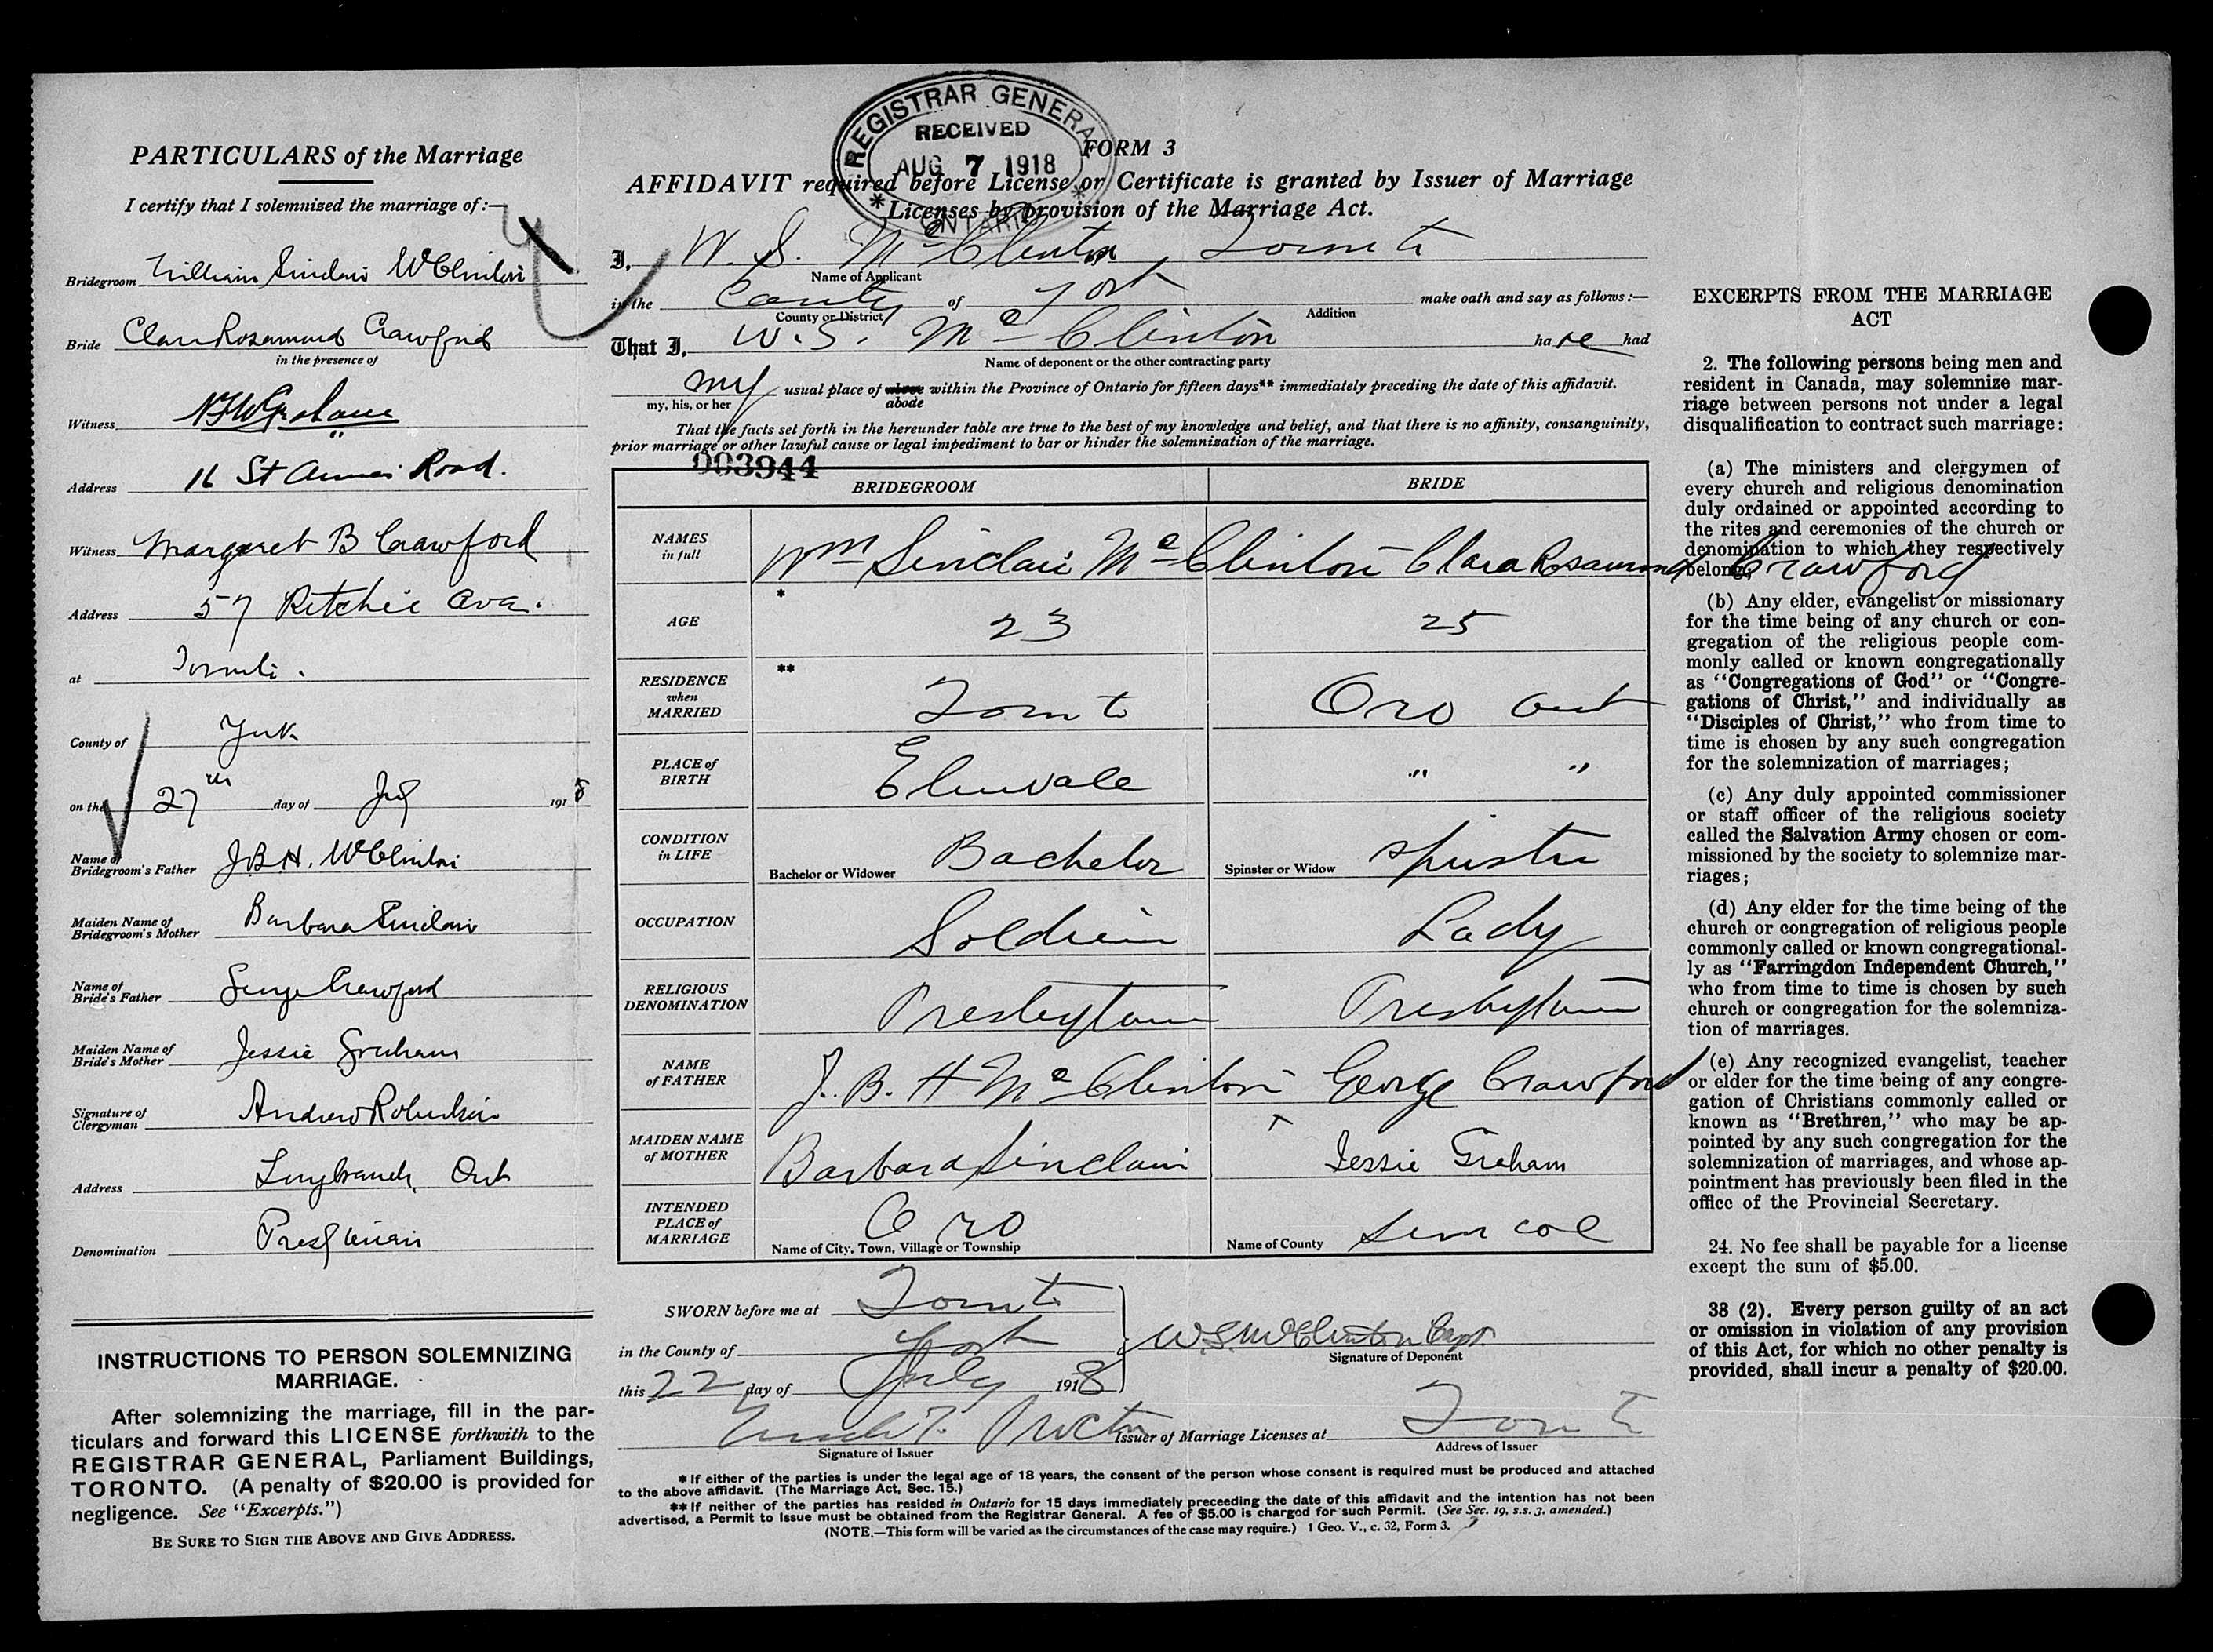 PARTICULARS of the Marriage
I certify that I solemnized the marriage of:—
Bridegroom William Sinclair McClinton
Bride Clara Rosamund Crawford
in the presence of
Witness Graham
Address 16 St Annes Road.
Witness Margaret B Crawford
Address 57 Ritchie Ave.
at Toronto.
County of York
on the 27th day of July 1918
Name of Bridegroom's Father J.B.H. McClinton
Maiden Name of Bridegroom's Mother Barbara Sinclair
Name of Bride's Father George Crawford
Maiden Name of Bride's Mother Jessie Graham
Signature of Clergyman Andrew Robertson
Address Longbranch, Ont
Denomination Presbyterian
INSTRUCTIONS TO PERSON SOLEMNIZING
MARRIAGE.
After solemnizing the marriage, fill in the par-
ticulars and forward this LICENSE forthwith to the
REGISTRAR GENERAL, Parliament Buildings,
TORONTO. (A penalty of $20.00 is provided for
negligence. See "Excerpts.")
BE SURE TO SIGN THE ABOVE AND GIVE ADDRESS.
REGISTRAR GENERAL
RECEIVED
AUG 7 1918
* ONTARIO *
FORM 3
AFFIDAVIT required before License or Certificate is granted by Issuer of Marriage
Licenses by provision of the Marriage Act.
I, W. S. McClinton, Toronto
Name of Applicant
in the County of York make oath and say as follows:—
County or District Addition
That I, W. S. McClinton have had
Name of deponent or the other contracting party
my usual place of above within the Province of Ontario for fifteen days** immediately preceding the date of this affidavit.
my, his, or her abode
That the facts set forth in the hereunder table are true to the best of my knowledge and belief, and that there is no affinity, consanguinity,
prior marriage or other lawful cause or legal impediment to bar or hinder the solemnization of the marriage.
003944
BRIDEGROOM BRIDE
NAMES in full Wm Sinclair McClinton Clara Rosamond Crawford
AGE * 23 25
RESIDENCE when MARRIED ** Toronto Oro Ont
PLACE of BIRTH Elmvale " "
CONDITION in LIFE Bachelor or Widower Bachelor Spinster or Widow Spinster
OCCUPATION Soldier Lady
RELIGIOUS DENOMINATION Presbyterian Presbyterian
NAME of FATHER J. B. H McClinton George Crawford
MAIDEN NAME of MOTHER Barbara Sinclair Jessie Graham
INTENDED PLACE of MARRIAGE Oro Simcoe
Name of City, Town, Village or Township Name of County
SWORN before me at Toronto
in the County of York W.S. McClinton Capt.
Signature of Deponent
this 22 day of July 1918
Proctor Issuer of Marriage Licenses at Toronto
Signature of Issuer Address of Issuer
* If either of the parties is under the legal age of 18 years, the consent of the person whose consent is required must be produced and attached
to the above affidavit. (The Marriage Act, Sec. 15.)
** If neither of the parties has resided in Ontario for 15 days immediately preceeding the date of this affidavit and the intention has not been
advertised, a Permit to Issue must be obtained from the Registrar General. A fee of $5.00 is charged for such Permit. (See Sec. 19, s.s. 3, amended.)
(NOTE.—This form will be varied as the circumstances of the case may require.) 1 Geo. V., c. 32, Form 3.
EXCERPTS FROM THE MARRIAGE
ACT
2. The following persons being men and
resident in Canada, may solemnize mar-
riage between persons not under a legal
disqualification to contract such marriage:
(a) The ministers and clergymen of
every church and religious denomination
duly ordained or appointed according to
the rites and ceremonies of the church or
denomination to which they respectively
belong;
(b) Any elder, evangelist or missionary
for the time being of any church or con-
gregation of the religious people com-
monly called or known congregationally
as "Congregations of God" or "Congre-
gations of Christ," and individually as
"Disciples of Christ," who from time to
time is chosen by any such congregation
for the solemnization of marriages;
(c) Any duly appointed commissioner
or staff officer of the religious society
called the Salvation Army chosen or com-
missioned by the society to solemnize mar-
riages;
(d) Any elder for the time being of the
church or congregation of religious people
commonly called or known congregational-
ly as "Farringdon Independent Church,"
who from time to time is chosen by such
church or congregation for the solemniza-
tion of marriages.
(e) Any recognized evangelist, teacher
or elder for the time being of any congre-
gation of Christians commonly called or
known as "Brethren," who may be ap-
pointed by any such congregation for the
solemnization of marriages, and whose ap-
pointment has previously been filed in the
office of the Provincial Secretary.
24. No fee shall be payable for a license
except the sum of $5.00.
38 (2). Every person guilty of an act
or omission in violation of any provision
of this Act, for which no other penalty is
provided, shall incur a penalty of $20.00.